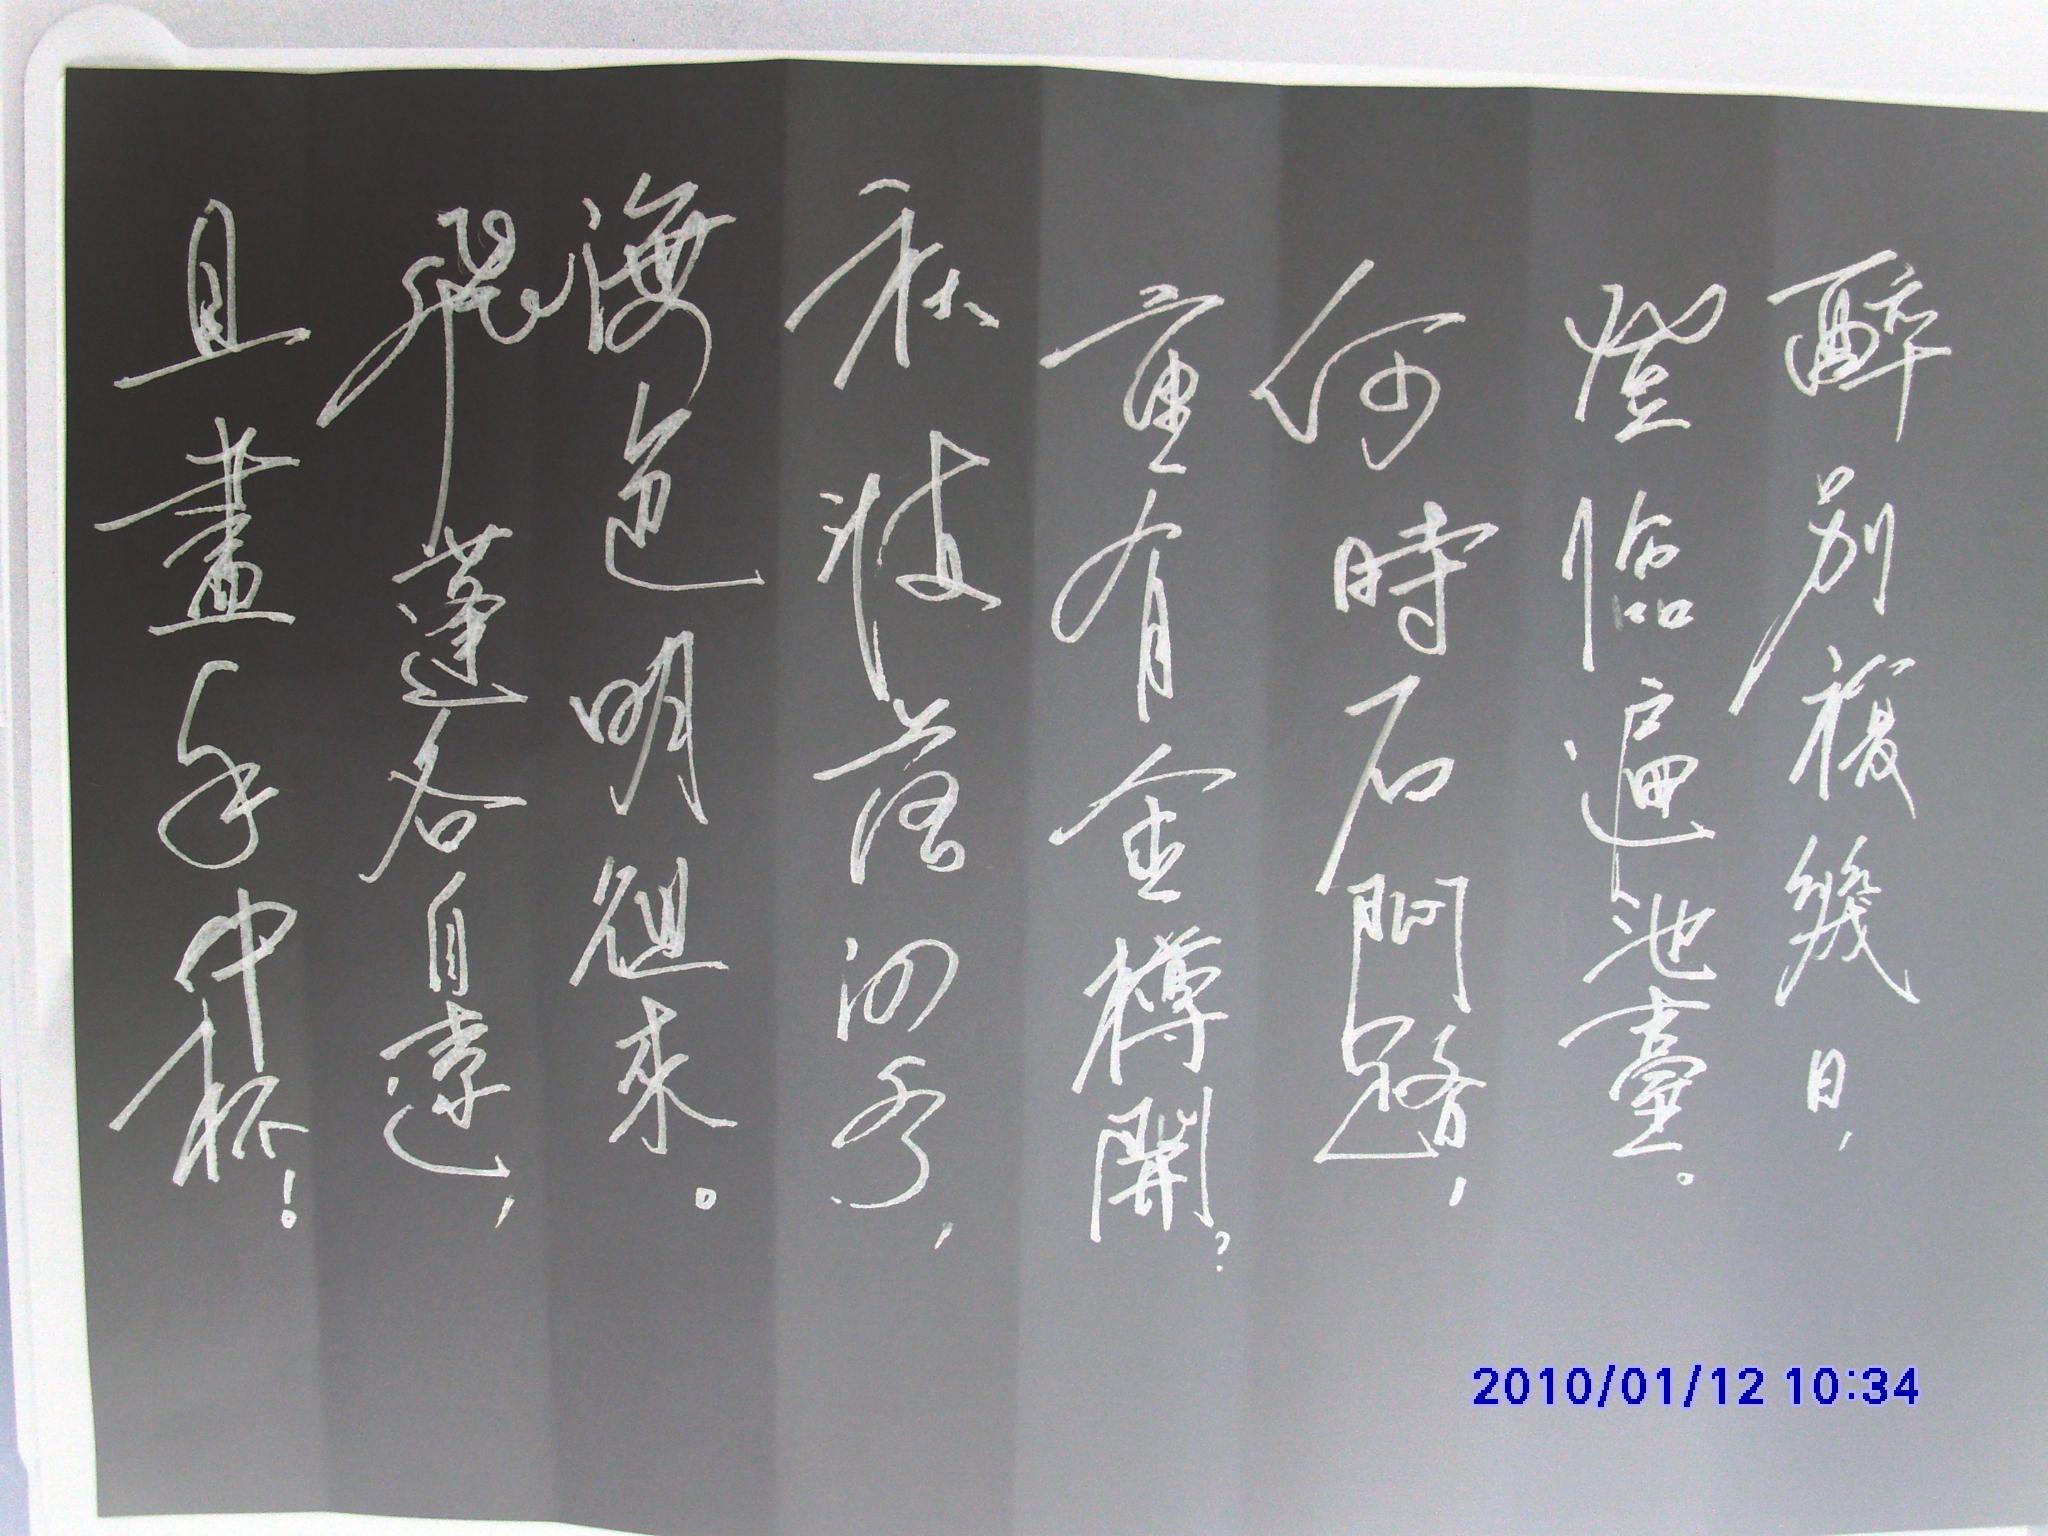 醉別複幾日，
登臨遍池臺。
何時石門路，
重有金樽開？
秋波落泗水，
海色明徂來。
飛蓬各自遠，
且盡手中杯！
2010/01/12 10:34